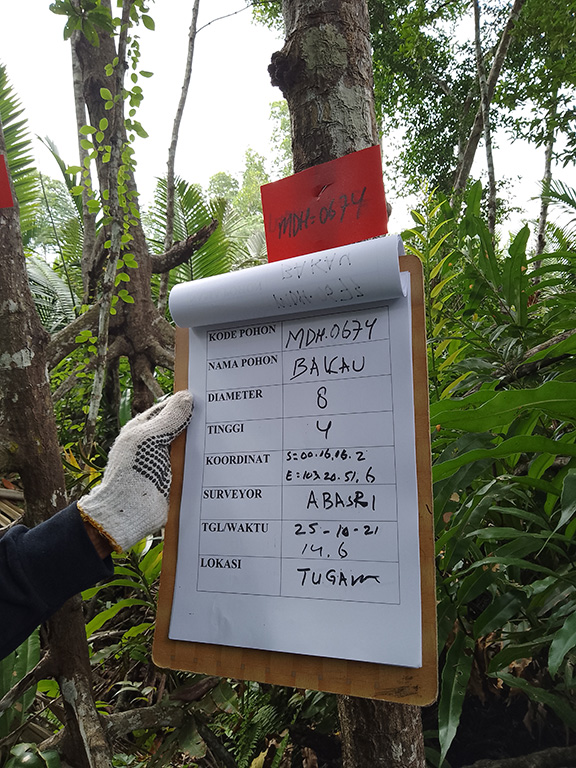 MDH-0674
KODE POHON MDH.0674
NAMA POHON BAKAU
DIAMETER 8
TINGGI 4
KOORDINAT S=00.16.16.2
E=103.20.51.6
SURVEYOR ABASRI
TGL/WAKTU 25-10-21
14.6
LOKASI